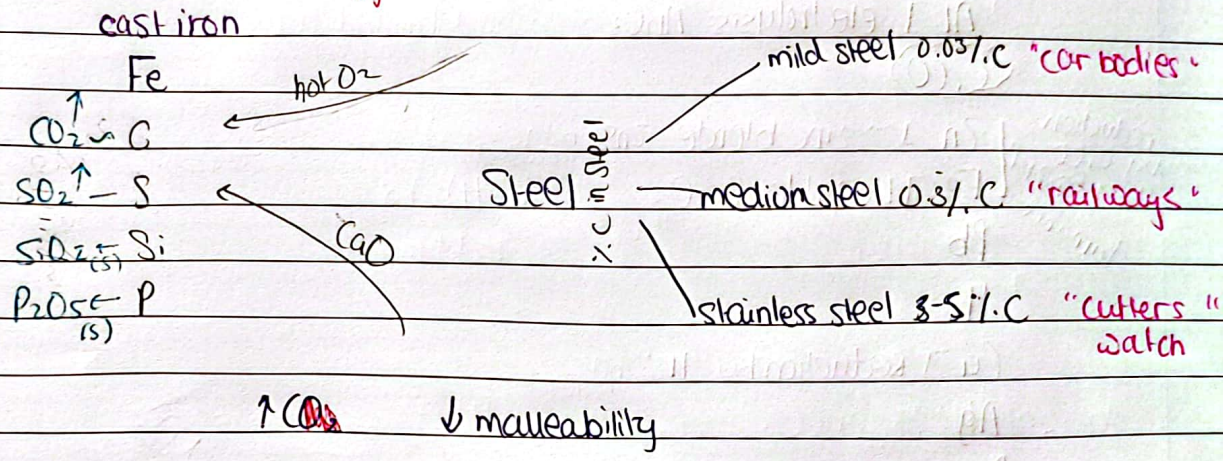 cast iron
Fe
hot O2
CO2 ← C
SO2 ← S
SiO2(s) ← Si
CaO
P2O5 ← P
(s)
Steel
% C in Steel
mild steel 0.03%.C "car bodies"
medium steel 0.3%.C "railways"
stainless steel 3-5%.C "cutters"
watch
↑ C
↓ malleability